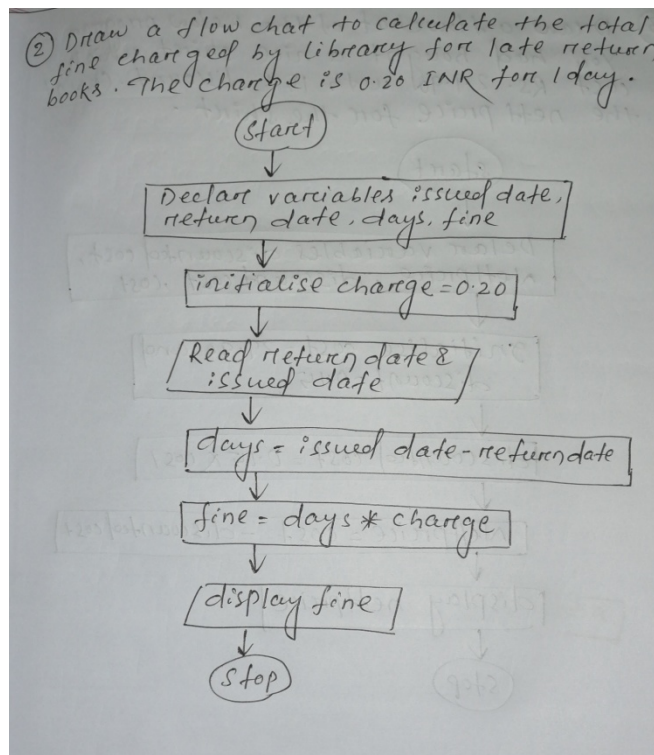 ② Draw a flow chat to calculate the total
fine charged by library for late return
books. The charge is 0.20 INR for 1 day.
Start
Declare variables issued date,
return date, days, fine
initialise charge = 0.20
Read return date &
issued date
days = issued date - return date
fine = days * charge
display fine
Stop